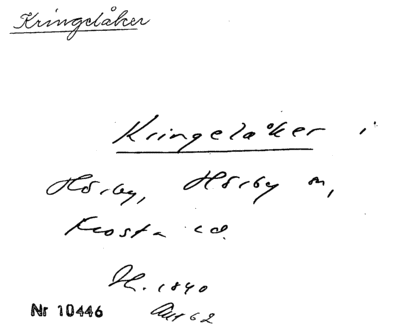 Kringelåker
Kringelåker i
Hörby, Hörby sn,
Frosta hd.
H. 1840
Nr 10446